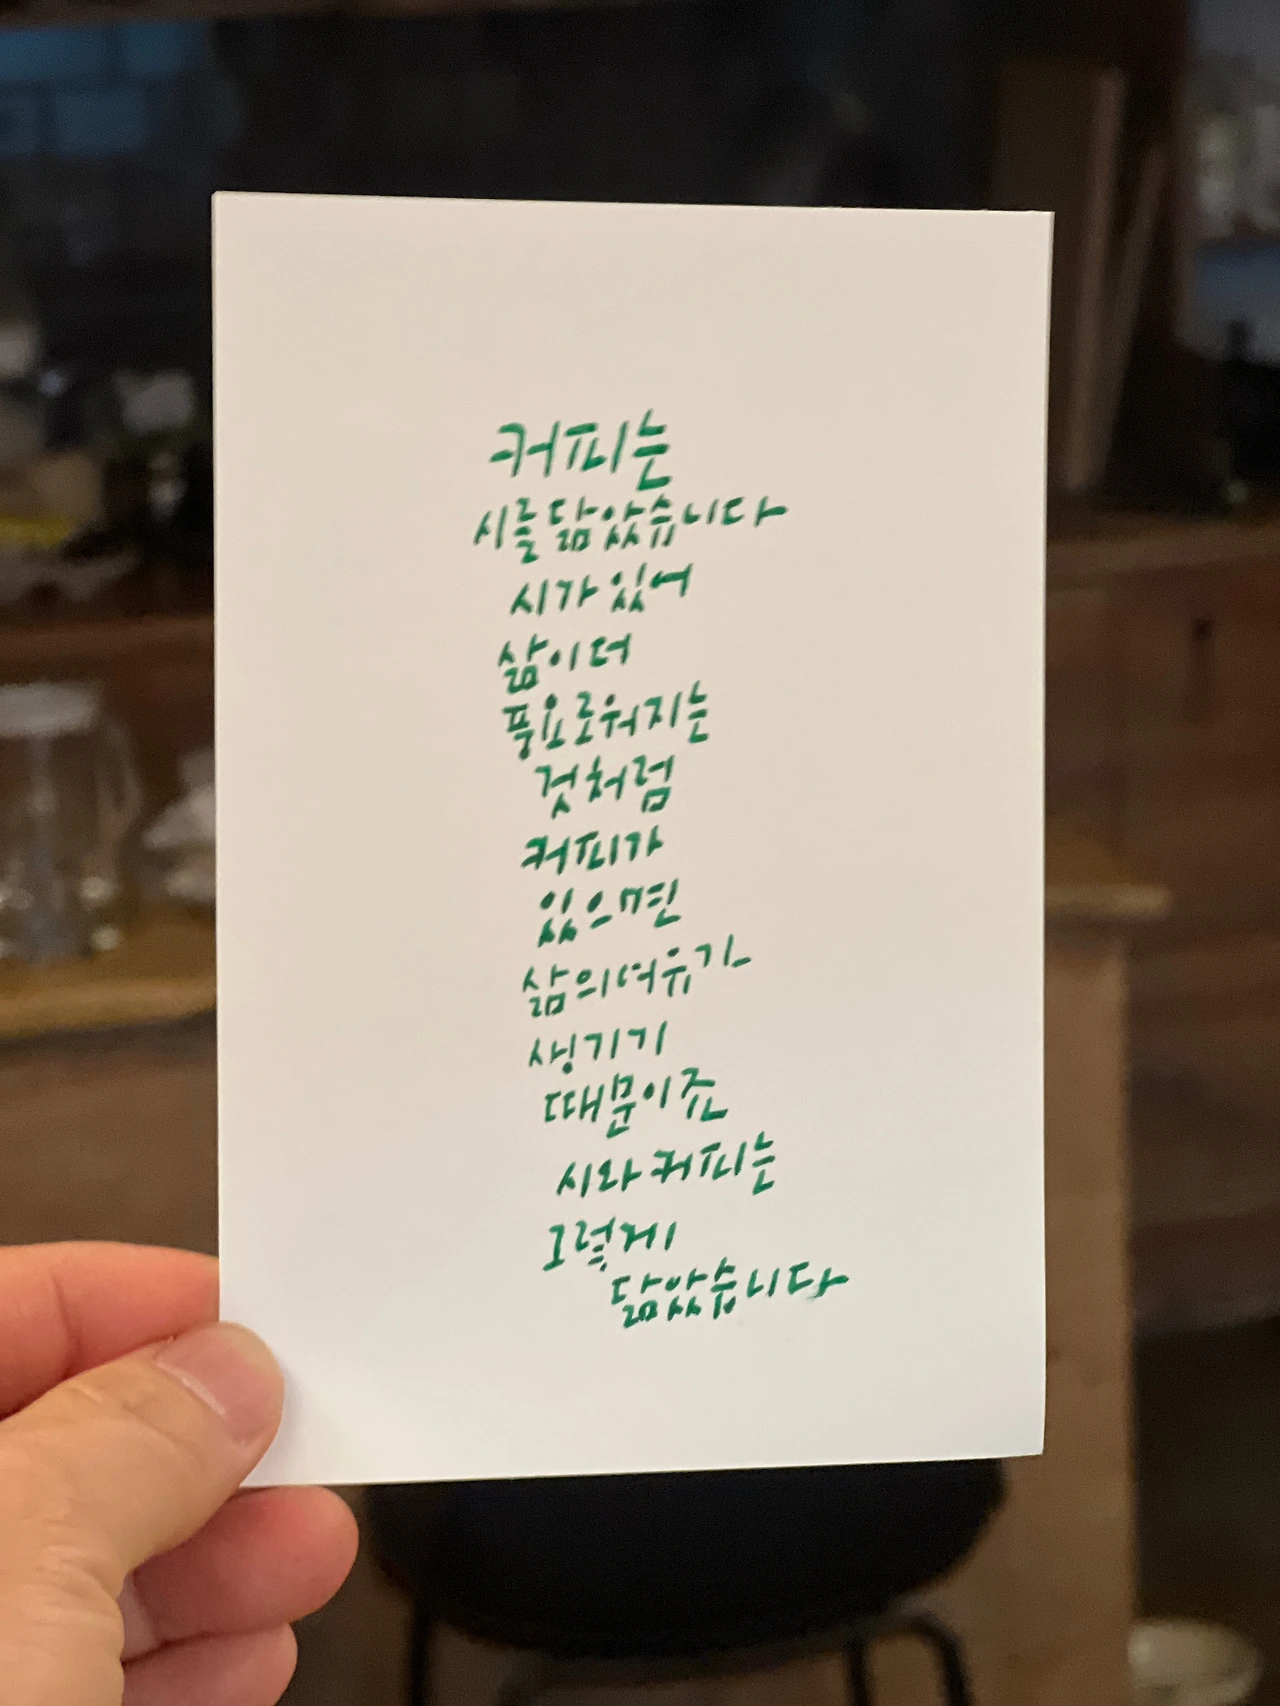 커피는
시를 닮았습니다
시가 있어
삶이 더
풍요로워지는
것처럼
커피가
있으면
삶의 여유가
생기기
때문이죠
시와 커피는
그렇게
닮았습니다